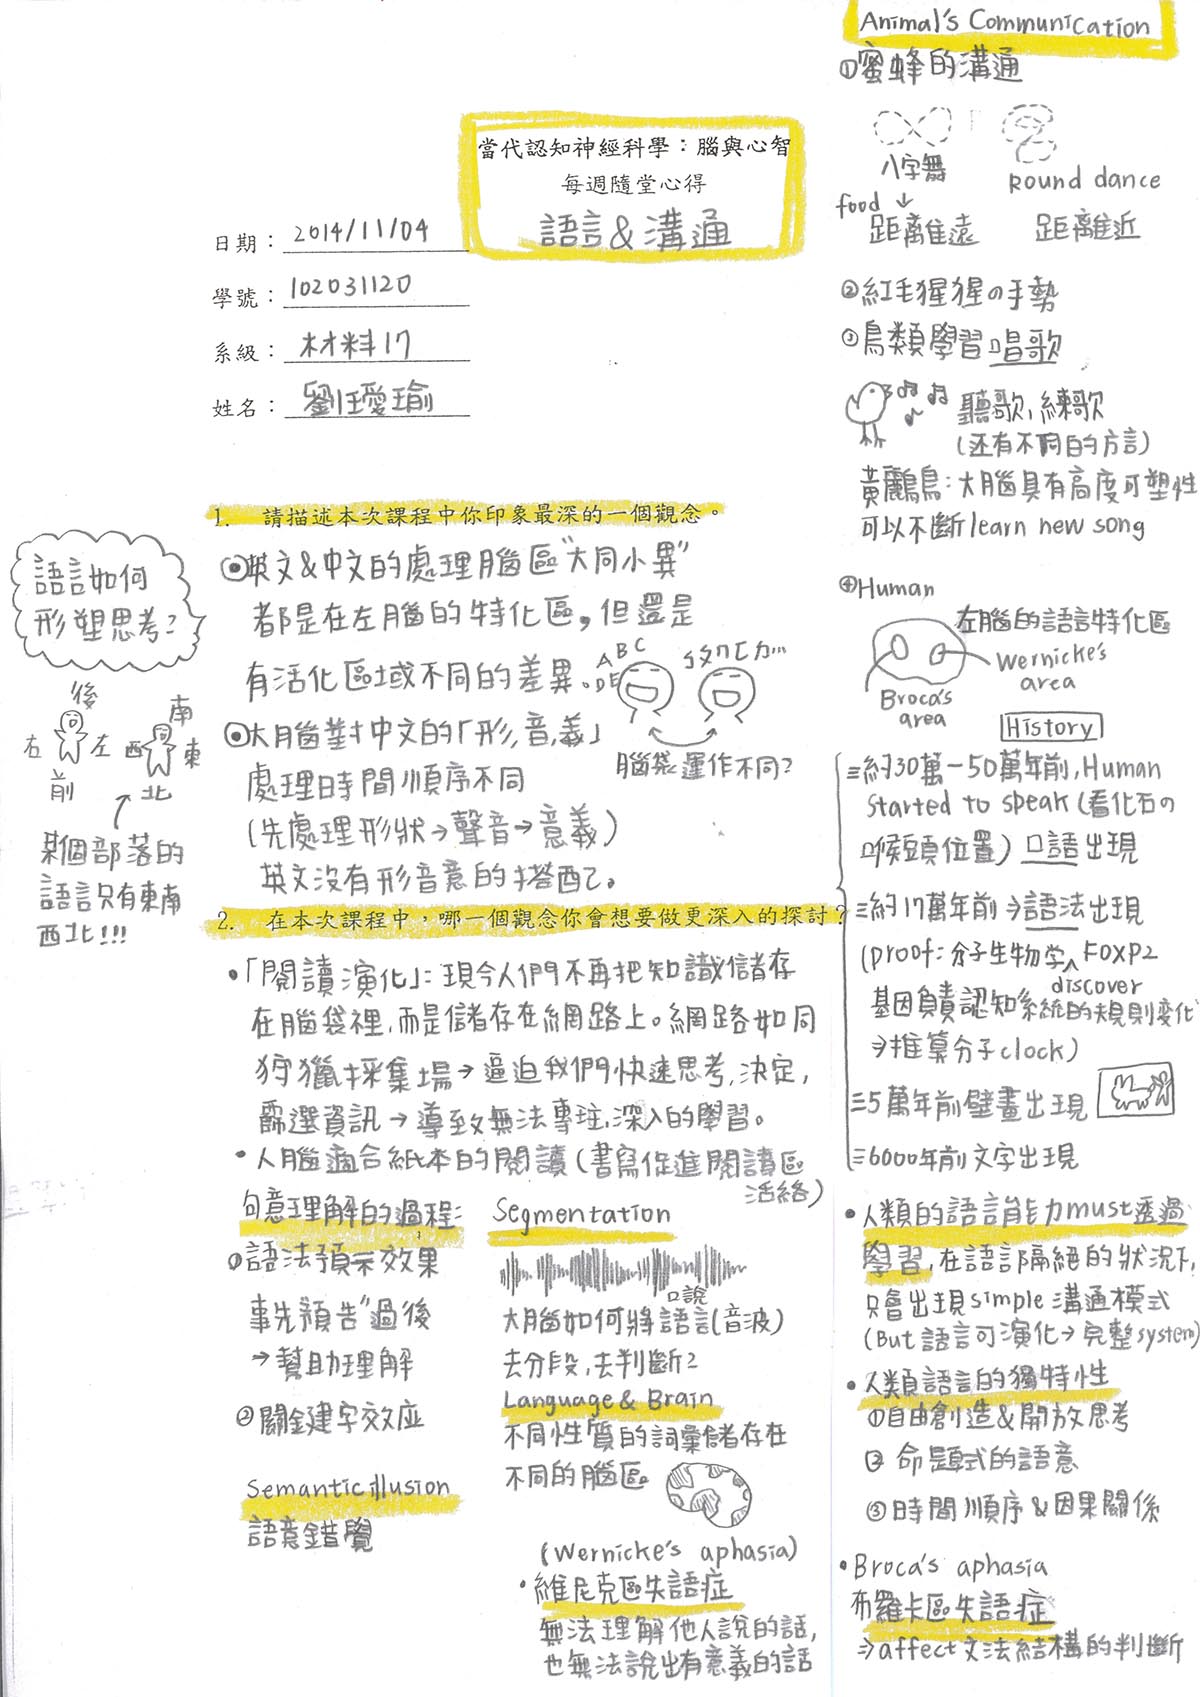 當代認知神經科學：腦與心智
每週隨堂心得
語言&溝通
日期：2014/11/04
學號：102031120
系級：材料17
姓名：劉璦瑜
1. 請描述本次課程中你印象最深的一個觀念。
◉英文&中文的處理腦區"大同小異"
都是在左腦的特化區，但還是
有活化區域不同的差異。
ABC
DE
ㄅㄆㄇㄈㄉ...
腦袋運作不同?
◉大腦對中文的「形,音,義」
處理時間順序不同
(先處理形狀→聲音→意義)
英文沒有形音意的搭配。
語言如何
形塑思考?
後
右 左
前
南
西 東
北
某個部落的
語言只有東南
西北!!!
2. 在本次課程中，哪一個觀念你會想要做更深入的探討?
•「閱讀演化」:現今人們不再把知識儲存
在腦袋裡,而是儲存在網路上。網路如同
狩獵採集場→逼迫我們快速思考,決定,
篩選資訊→導致無法專注,深入的學習。
•人腦適合紙本的閱讀(書寫促進閱讀區
活絡)
句意理解的過程:
①語法預示效果
事先預告"過後
→幫助理解
②關鍵字效应
Semantic illusion
語意錯覺
Segmentation
口說
大腦如何將語言(音波)
去分段,去判斷?
Language & Brain
不同性質的詞彙儲存在
不同的腦區
(Wernicke's aphasia)
•維尼克區失語症
無法理解他人說的話,
也無法說出有意義的話
Animal's Communication
①蜜蜂的溝通
八字舞
Round dance
food ↓
距離遠
距離近
②紅毛猩猩の手勢
③鳥類學習唱歌
聽歌,練歌
(还有不同的方言)
黃鸝鳥:大腦具有高度可塑性
可以不斷learn new song
④Human
左腦的語言特化區
Wernicke's
area
Broca's
area
History
≡約30萬-50萬年前,Human
started to speak(看化石の
喉頭位置)口語出現
≡約17萬年前⇒語法出現
(proof:分子生物学 discover FOXP2
基因負責認知系統的規則变化
⇒推算分子clock)
≡5萬年前壁畫出現
≡6000年前文字出現
•人類的語言能力must透過
學習,在語言隔絕的狀況下,
只會出現simple溝通模式
(But語言可演化→完整system)
•人類語言的獨特性
①自由創造&開放思考
②命題式的語意
③時間順序&因果關係
•Broca's aphasia
布羅卡區失語症
⇒affect文法結構的判斷